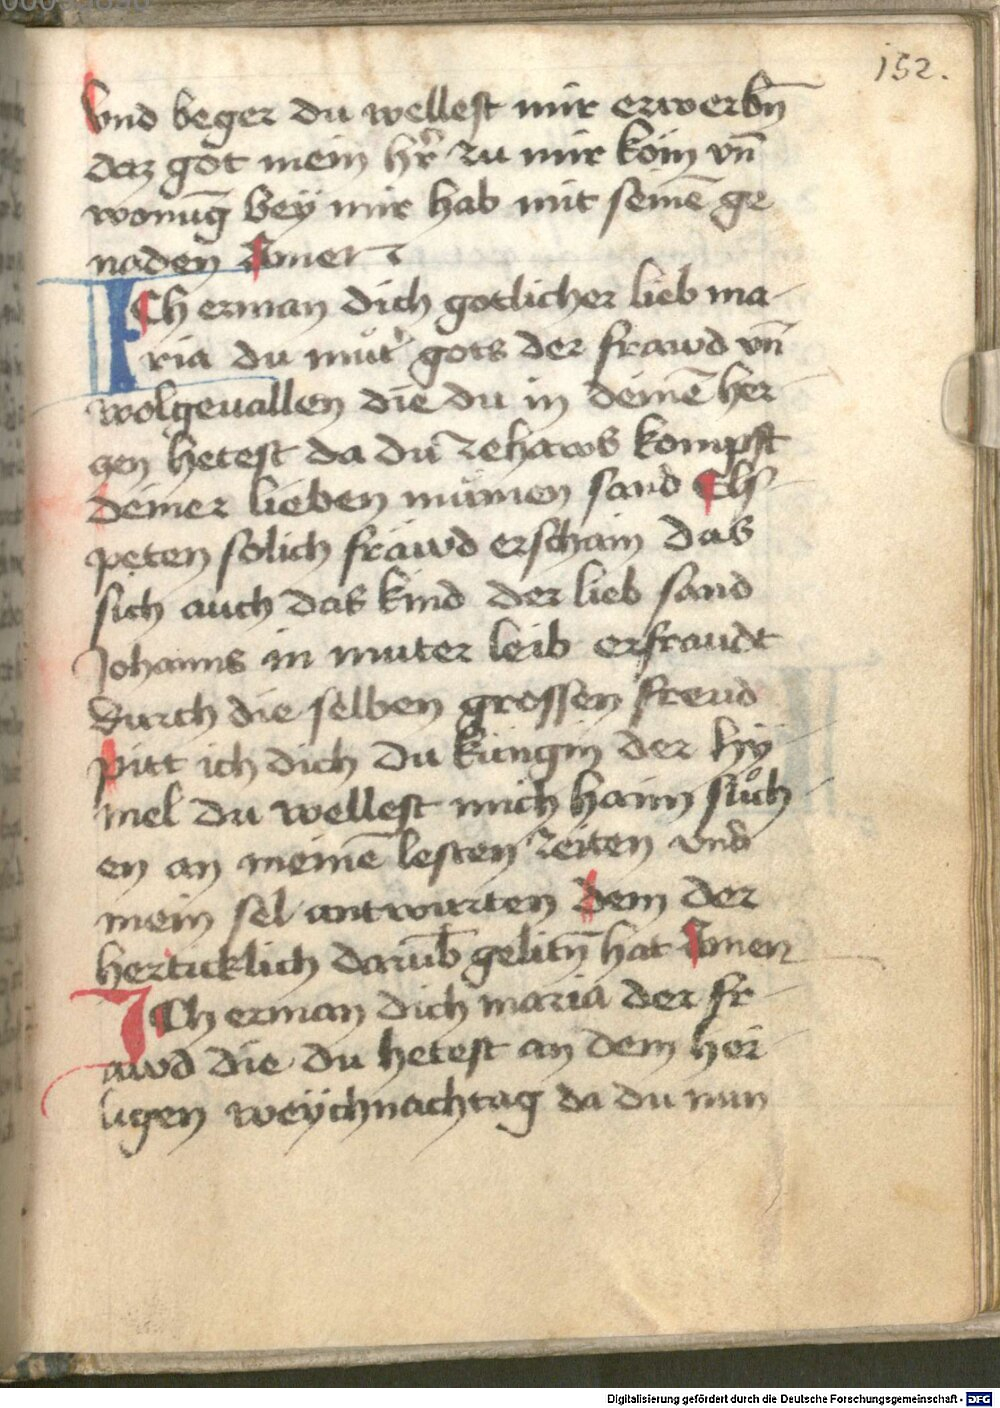 152.
Vnd beger du wellest mir erwerbn̄
daz got mein hr̄ zu mir kom̄ vn̄
wonūg bey mir hab mit seinē ge
naden Amen
ICh erman dich gotlicher lieb ma-
ria du mut' gots der frawd vn̄
wolgeuallen die du in deinē her
czen hetest da du ze haws kompst
deiner lieben mumen sand Els-
peten solich frawd erschain das
sich auch das kind der lieb sand
Johanns in muter leib erfraudt
durch die selben grossen freud
pitt ich dich du kungin der hy-
mel du wellest mich haim suͦch
en an meinē lesten zeiten vnd
mein sel antwurten dem der
hertticklich darūb gelitn̄ hat Amen
ICh erman dich maria der fr-
awd die du hetest an dem hei-
ligen weychnachtag da du nun
Digitalisierung gefördert durch die Deutsche Forschungsgemeinschaft - DFG